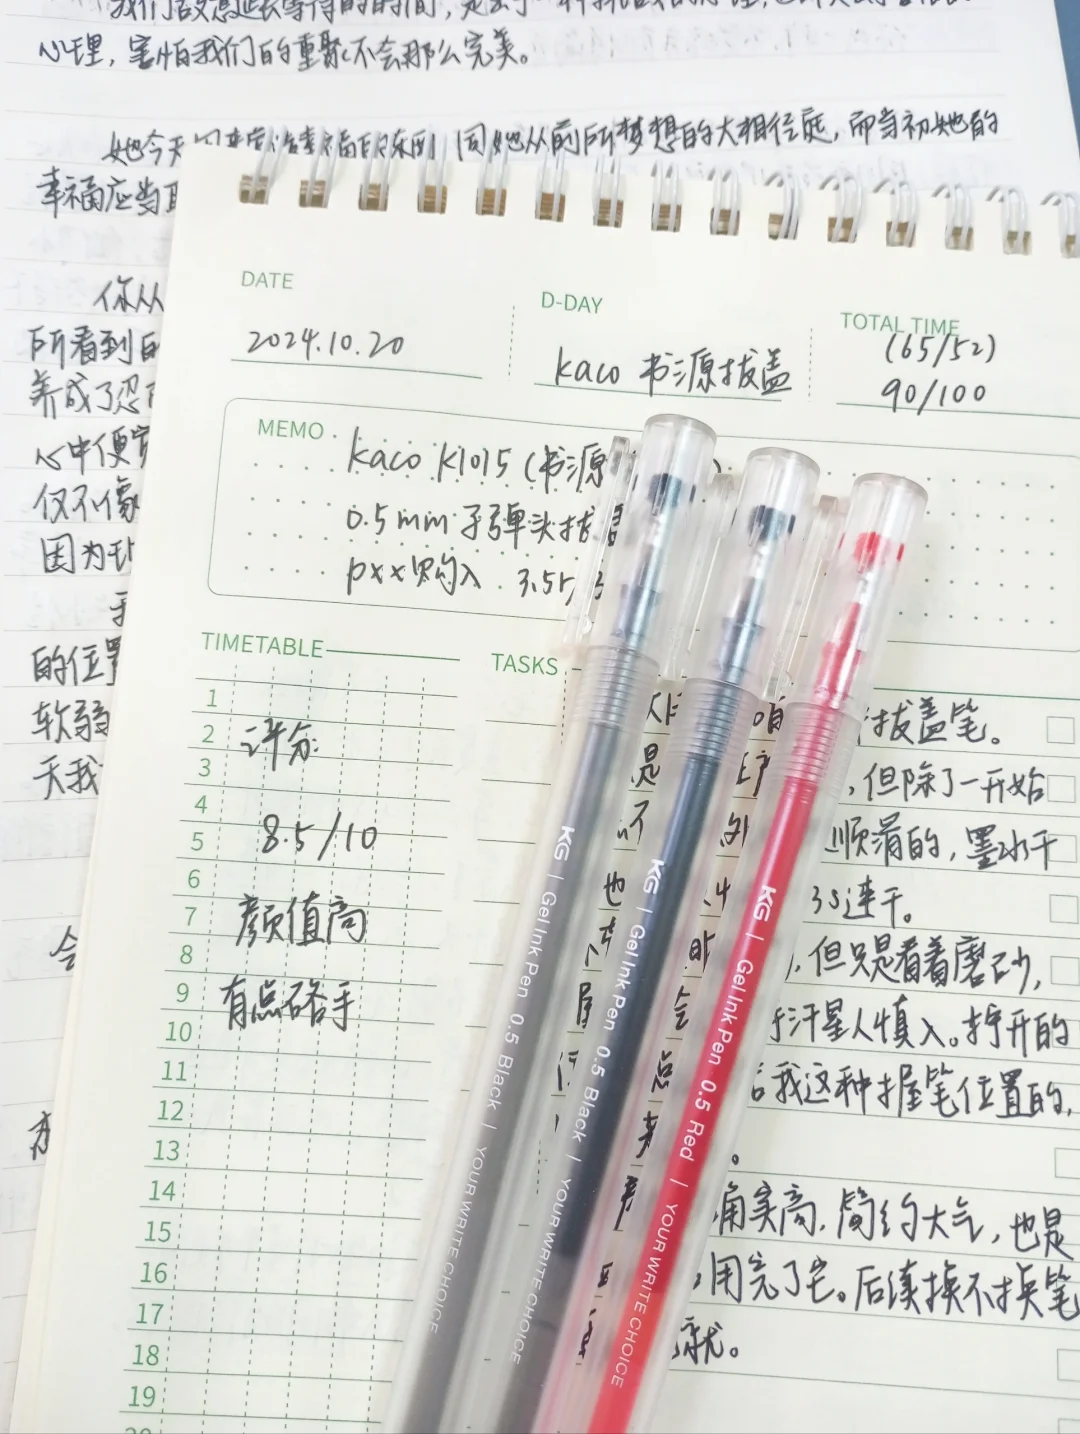 心理，害怕我们的重聚不会那么完美。
她今天
同她从前所梦想的大相径庭，而当初她的
幸福应当
你从
所看到的
养成了忍
心中便
仅不像
因为
的位置
软弱
天我
DATE
2024.10.20
D-DAY
kaco 书源拔盖
TOTAL TIME
(65/52)
90/100
MEMO
kaco K1015 (书源
0.5mm 子弹头拔
pxx购入 3.5r/3
TIMETABLE
1
2
3
4
5
6
7
8
9
10
11
12
13
14
15
16
17
18
19
评分:
8.5/10
颜值高
有点硌手
TASKS
拔盖笔。
是
，但除了一开始
不
顺滑的，墨水干
也
3s速干。
，但只是看着磨砂，
手汗星人慎入。拧开的
会
我这种握笔位置的，
点
。
确实高，简约大气，也是
，用完了它。后续换不换笔
就。
KG | Gel Ink Pen 0.5 Black | YOUR WRITE CHOICE
KG | Gel Ink Pen 0.5 Black | YOUR WRITE CHOICE
KG | Gel Ink Pen 0.5 Red | YOUR WRITE CHOICE